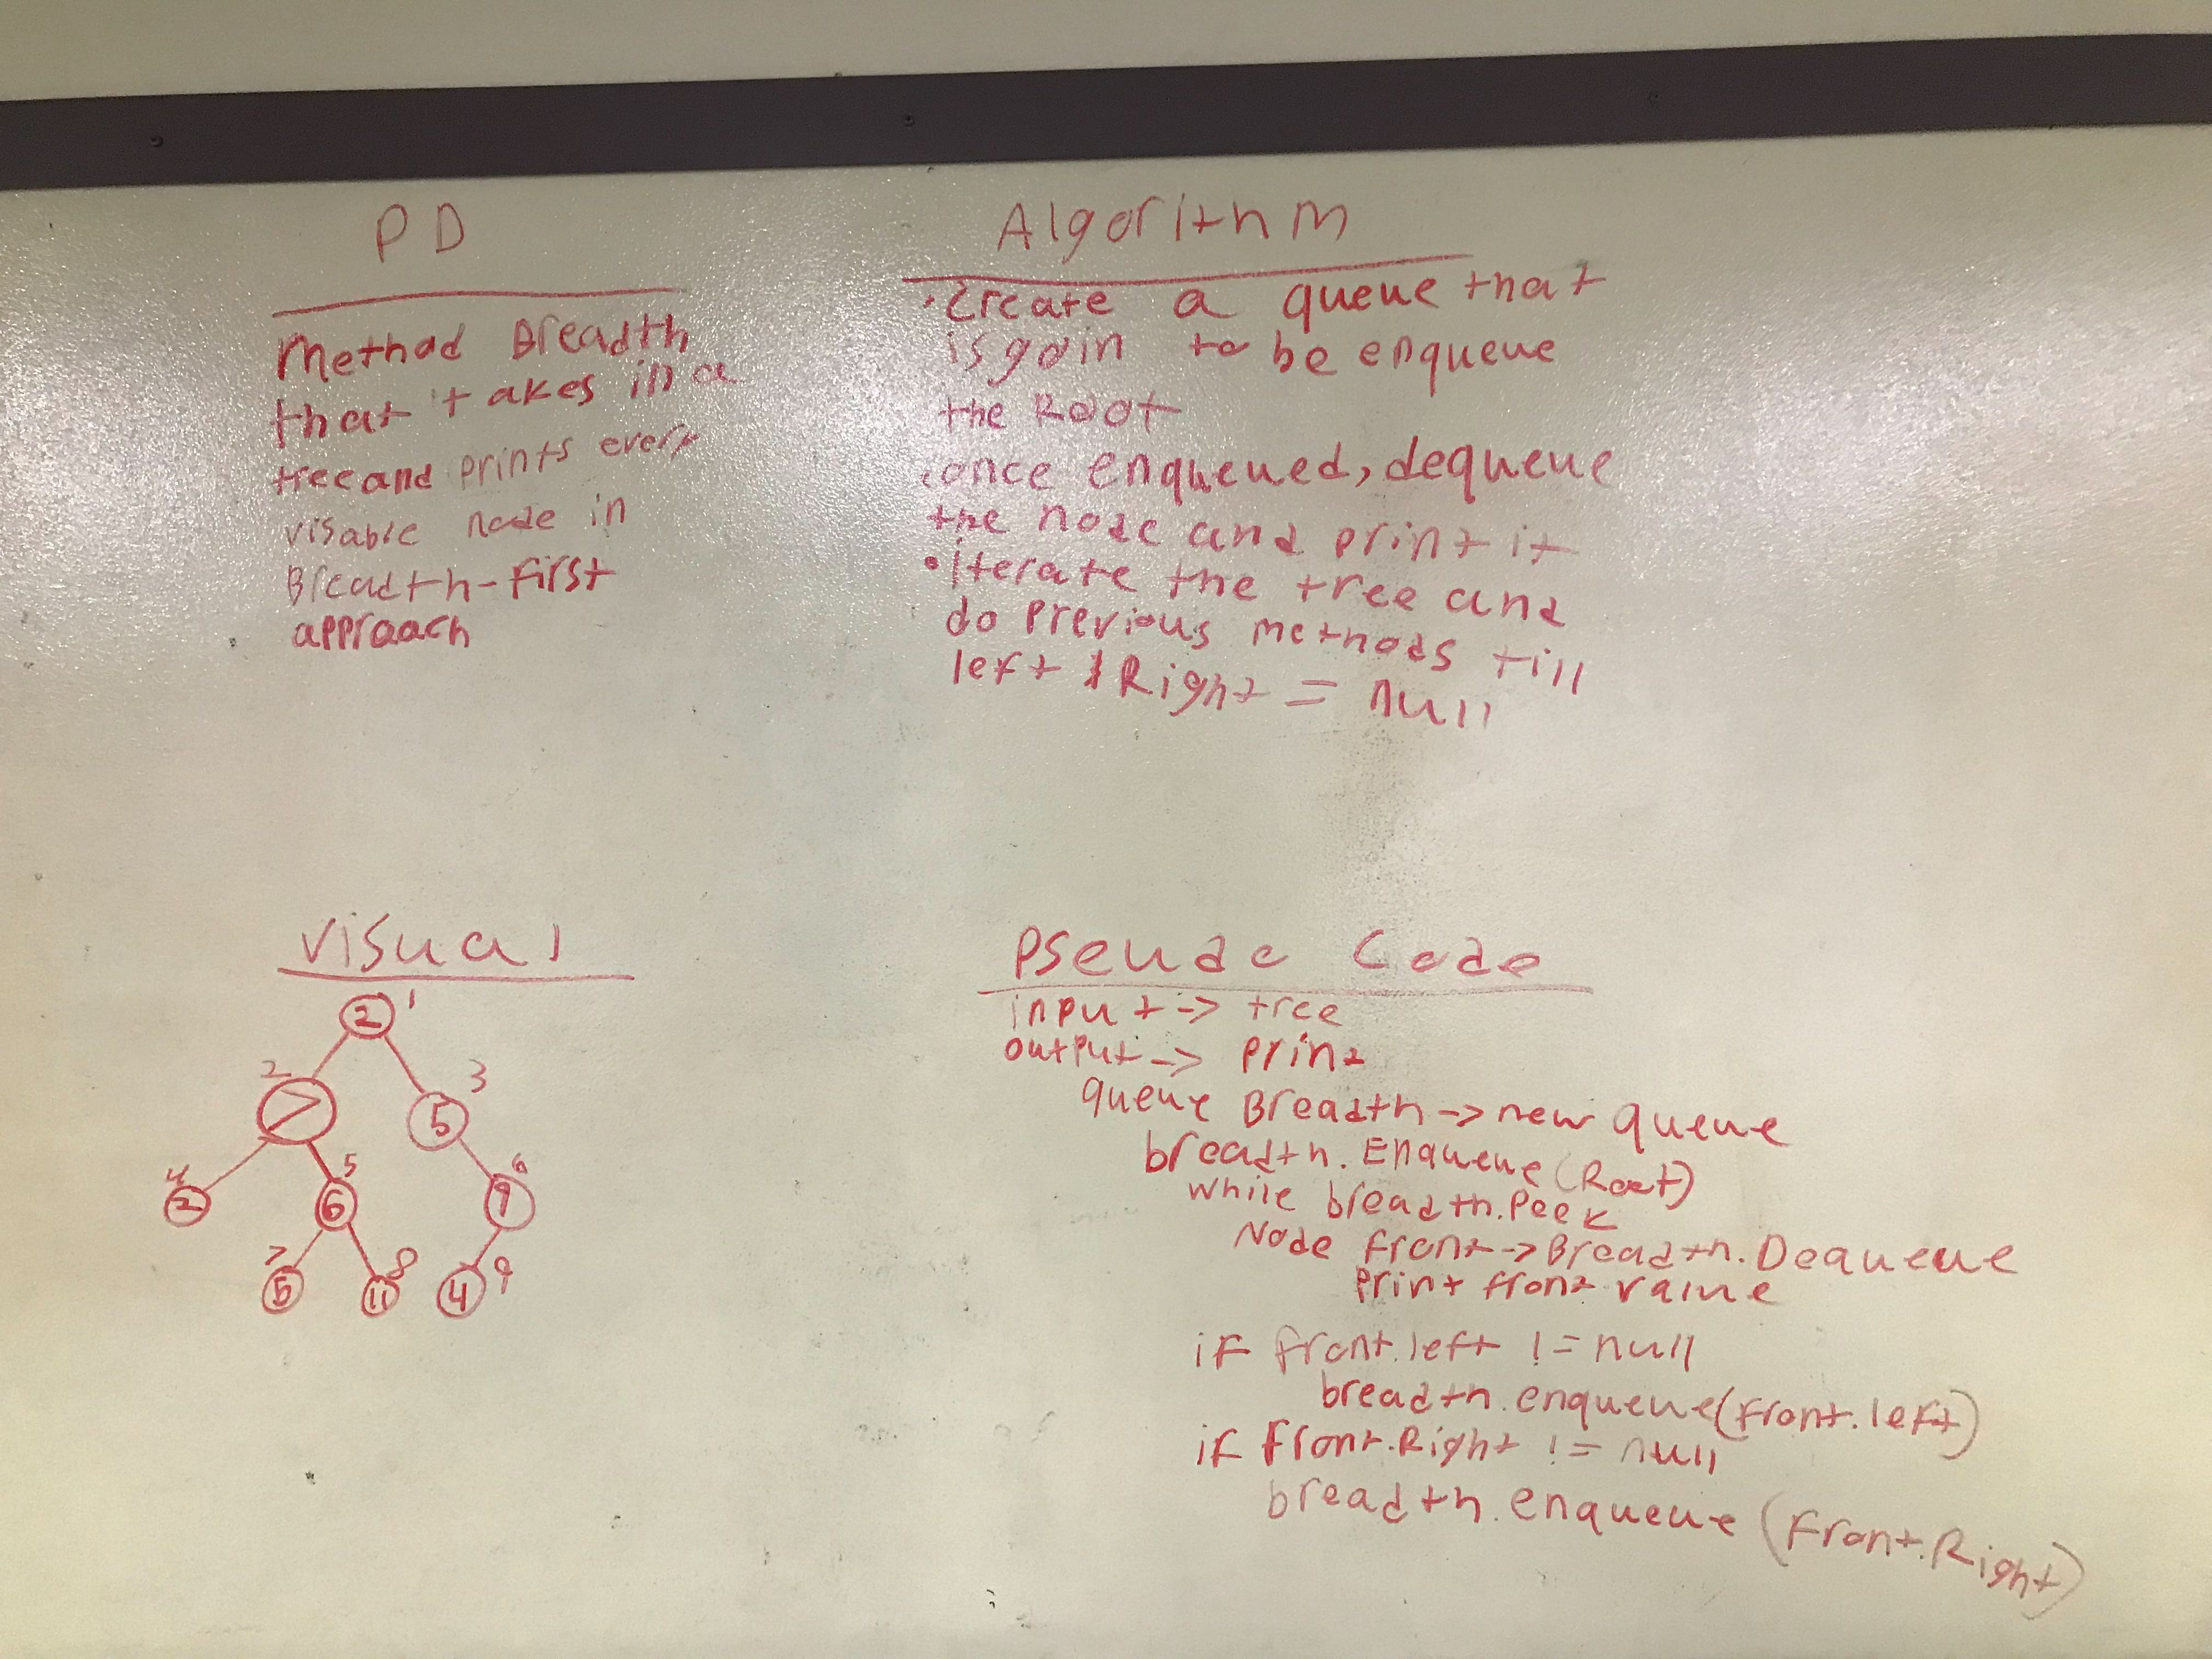 PD
Method Breadth
that takes in a
tree and prints every
visable node in
Breadth-first
approach
Algorithm
· Create a queue that
is goin to be enqueue
the Root
· once enqueued, dequeue
the node and print it
• iterate the tree and
do previous methods till
left & Right = null
visual
2 1
2 3
7 5
4 5 6
2 6 9
7 8 9
5 11 4
Pseudo Code
input -> tree
output -> print
queue Breadth -> new queue
breadth. Enqueue (Root)
while breadth.Peek
Node front -> Breadth. Dequeue
Print front value
if front.left != null
breadth.enqueue(front.left)
if Front.Right != null
breadth.enqueue (front.Right)